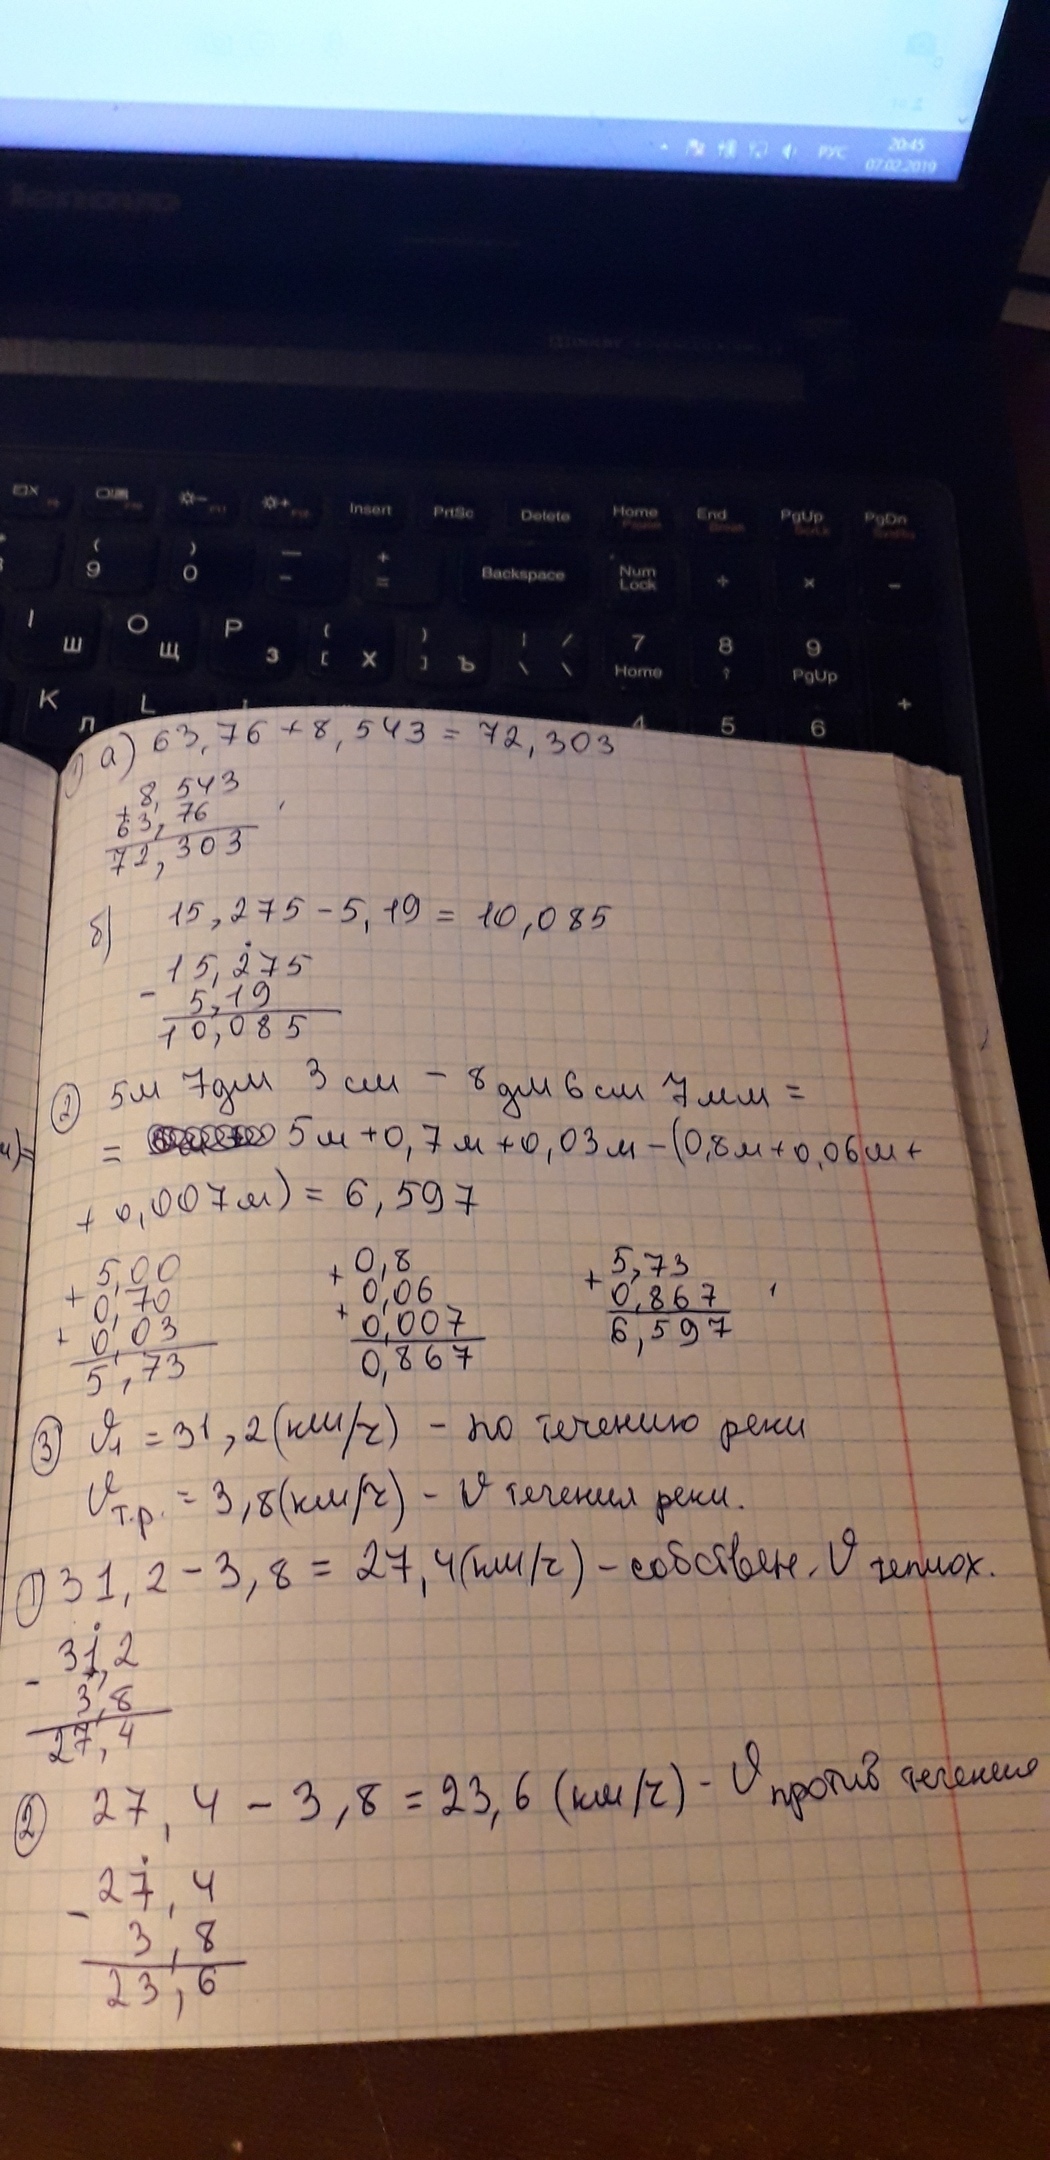 РУС
20:45
07.02.2019
lenovo
Insert
PrtSc
Delete
Home
End
PgUp
PgDn
( 9
) 0
— -
+ =
Backspace
Num Lock
÷
×
-
I Ш
O Щ
P З
{ [ Х
} ] Ъ
| / \ \
7 Home
8
9 PgUp
+
K Л
L
4
5
6
1) а) 63,76 + 8,543 = 72,303
8,543
+
63,76
72,303
б) 15,275 - 5,19 = 10,085
15,275
-
5,19
10,085
② 5м 7дм 3 см - 8 дм 6 см 7 мм =
= 5м + 0,7м + 0,03м - (0,8м + 0,06м +
+ 0,007м) = 6,597
5,00
+
0,70
+
0,03
5,73
0,8
+
0,06
+
0,007
0,867
5,73
+
0,867
6,597
③ V1 = 31,2 (км/ч) - по течению реки
Vт.р. = 3,8 (км/ч) - V течения реки.
1) 31,2 - 3,8 = 27,4 (км/ч) - собствен. V теплох.
31,2
-
3,8
27,4
② 27,4 - 3,8 = 23,6 (км/ч) - V против течения
27,4
-
3,8
23,6